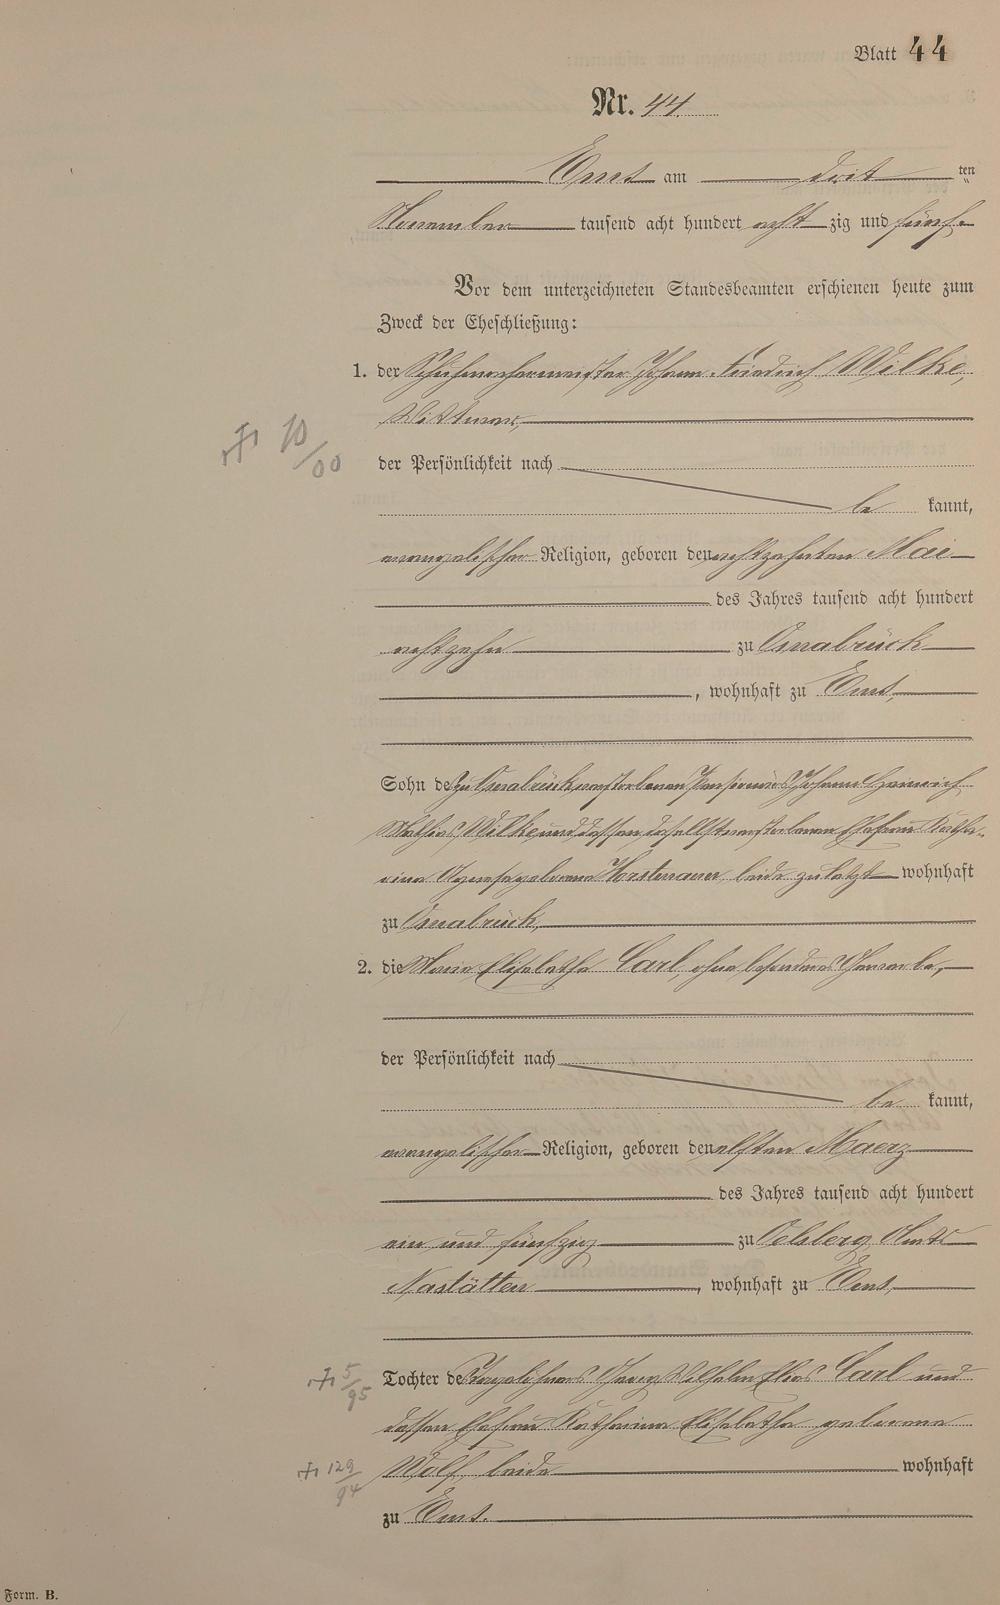 Blatt 44
Nr. 44.
Ems am dritten
November tausend acht hundert achtzig und fünf
Vor dem unterzeichneten Standesbeamten erschienen heute zum
Zweck der Eheschließung:
1. der Schuhmachermeister Johann Friedrich Wilke,
Wittwer,
der Persönlichkeit nach
be kannt,
evangelischer Religion, geboren den achtzehnten Mai
des Jahres tausend acht hundert
achtzehn zu Osnabrück
, wohnhaft zu Ems,
Sohn des zu Osnabrück verstorbenen Pensionärs Johann Heinrich
Mathias Wilke und dessen daselbst verstorbenen Ehefrau Katha-
rina Agnese geborene Horstmann, beide zuletzt wohnhaft
zu Osnabrück,
2. die Marie Elisabetha Carl, ohne besonderes Gewerbe,
der Persönlichkeit nach
be kannt,
evangelischer Religion, geboren den elften Maerz
des Jahres tausend acht hundert
ein und fünfzig zu Oelsberg, Amts
Nastätten, wohnhaft zu Ems,
Tochter des Tagelöhners Georg Wilhelm Elias Carl und
dessen Ehefrau Katharina Elisabetha geborene
Wolf, beide wohnhaft
zu Ems.
10/00
5/95
129/94
Form. B.